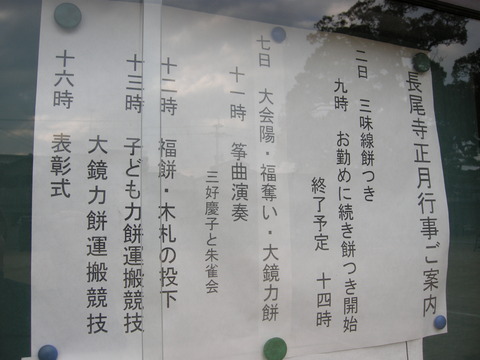 長尾寺正月行事ご案内
二日 三味線餅つき
九時 お勤めに続き餅つき開始
終了予定 十四時
七日 大会陽・福奪い・大鏡力餅
十一時 筝曲演奏
三好慶子と朱雀会
十二時 福餅・木札の投下
十三時 子ども力餅運搬競技
大鏡力餅運搬競技
十六時 表彰式